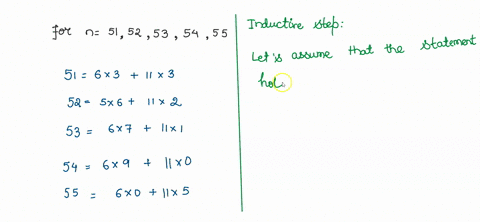 for n= 51, 52, 53, 54, 55
51 = 6×3 + 11×3
52 = 5×6 + 11×2
53 = 6×7 + 11×1
54 = 6×9 + 11×0
55 = 6×0 + 11×5
Inductive step:
Let's assume that the statement
hol